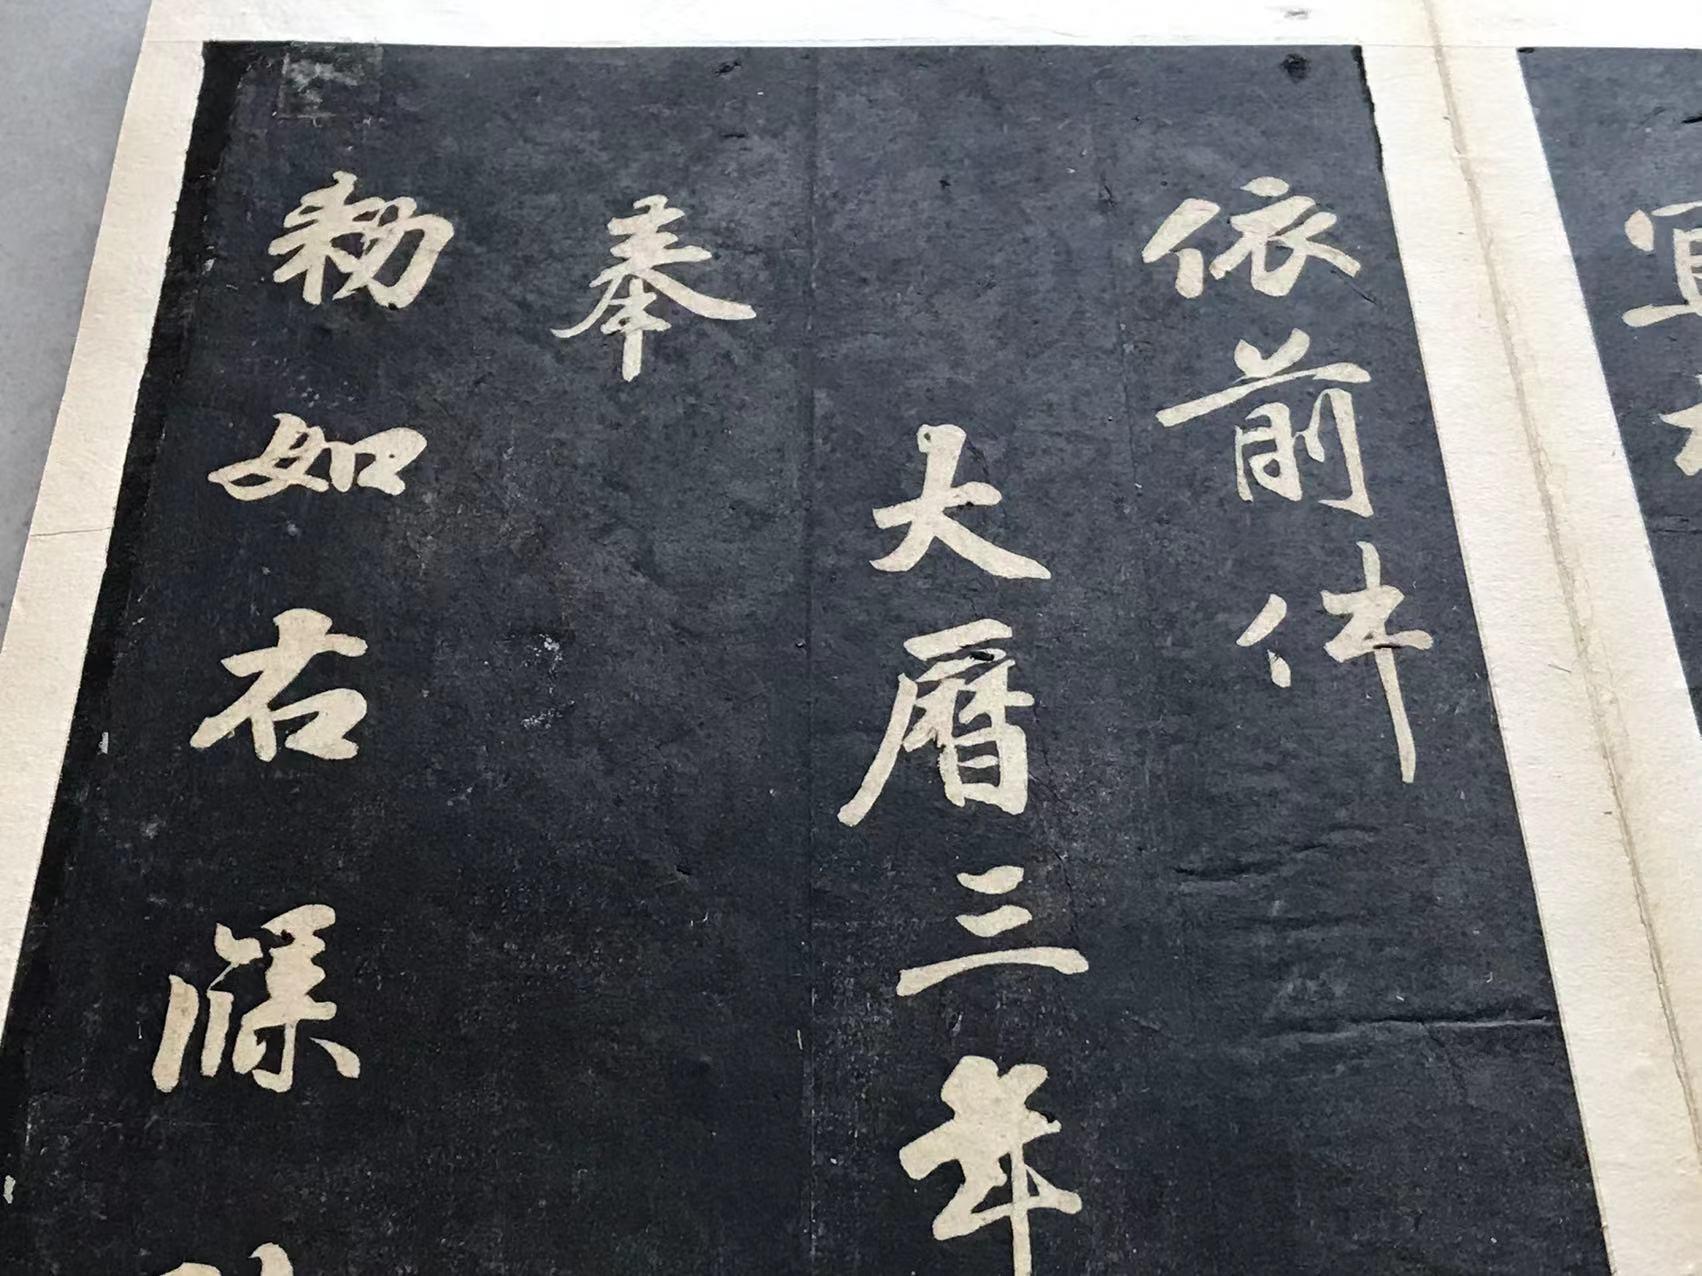 宜
依前件
大曆三年
奉
勑如右牒